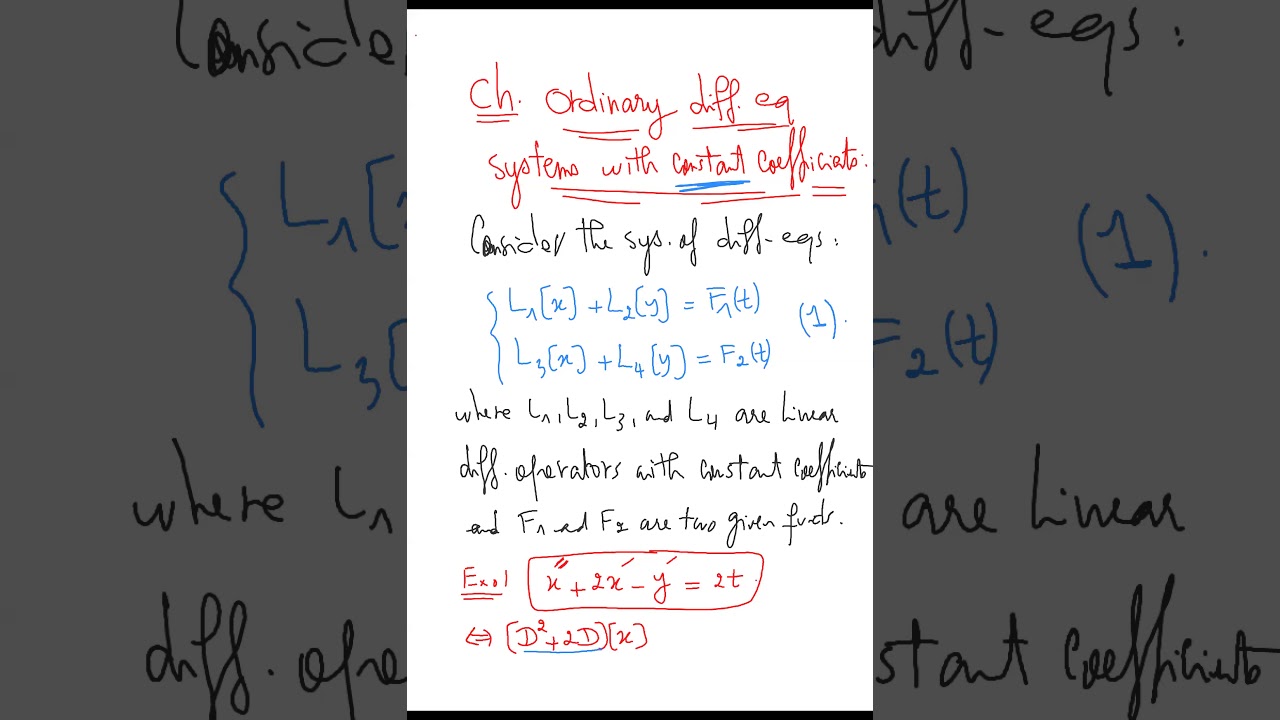 Ch. Ordinary diff. eq
systems with constant coefficients:
Consider the sys. of diff-eqs:
L₁[x] + L₂[y] = F₁(t)
(1).
L₃[x] + L₄[y] = F₂(t)
where L₁, L₂, L₃, and L₄ are linear
diff. operators with constant coefficients
and F₁ and F₂ are two given functs.
Ex.1 x″ + 2x′ - y′ = 2t.
⇔ (D² + 2D)[x]